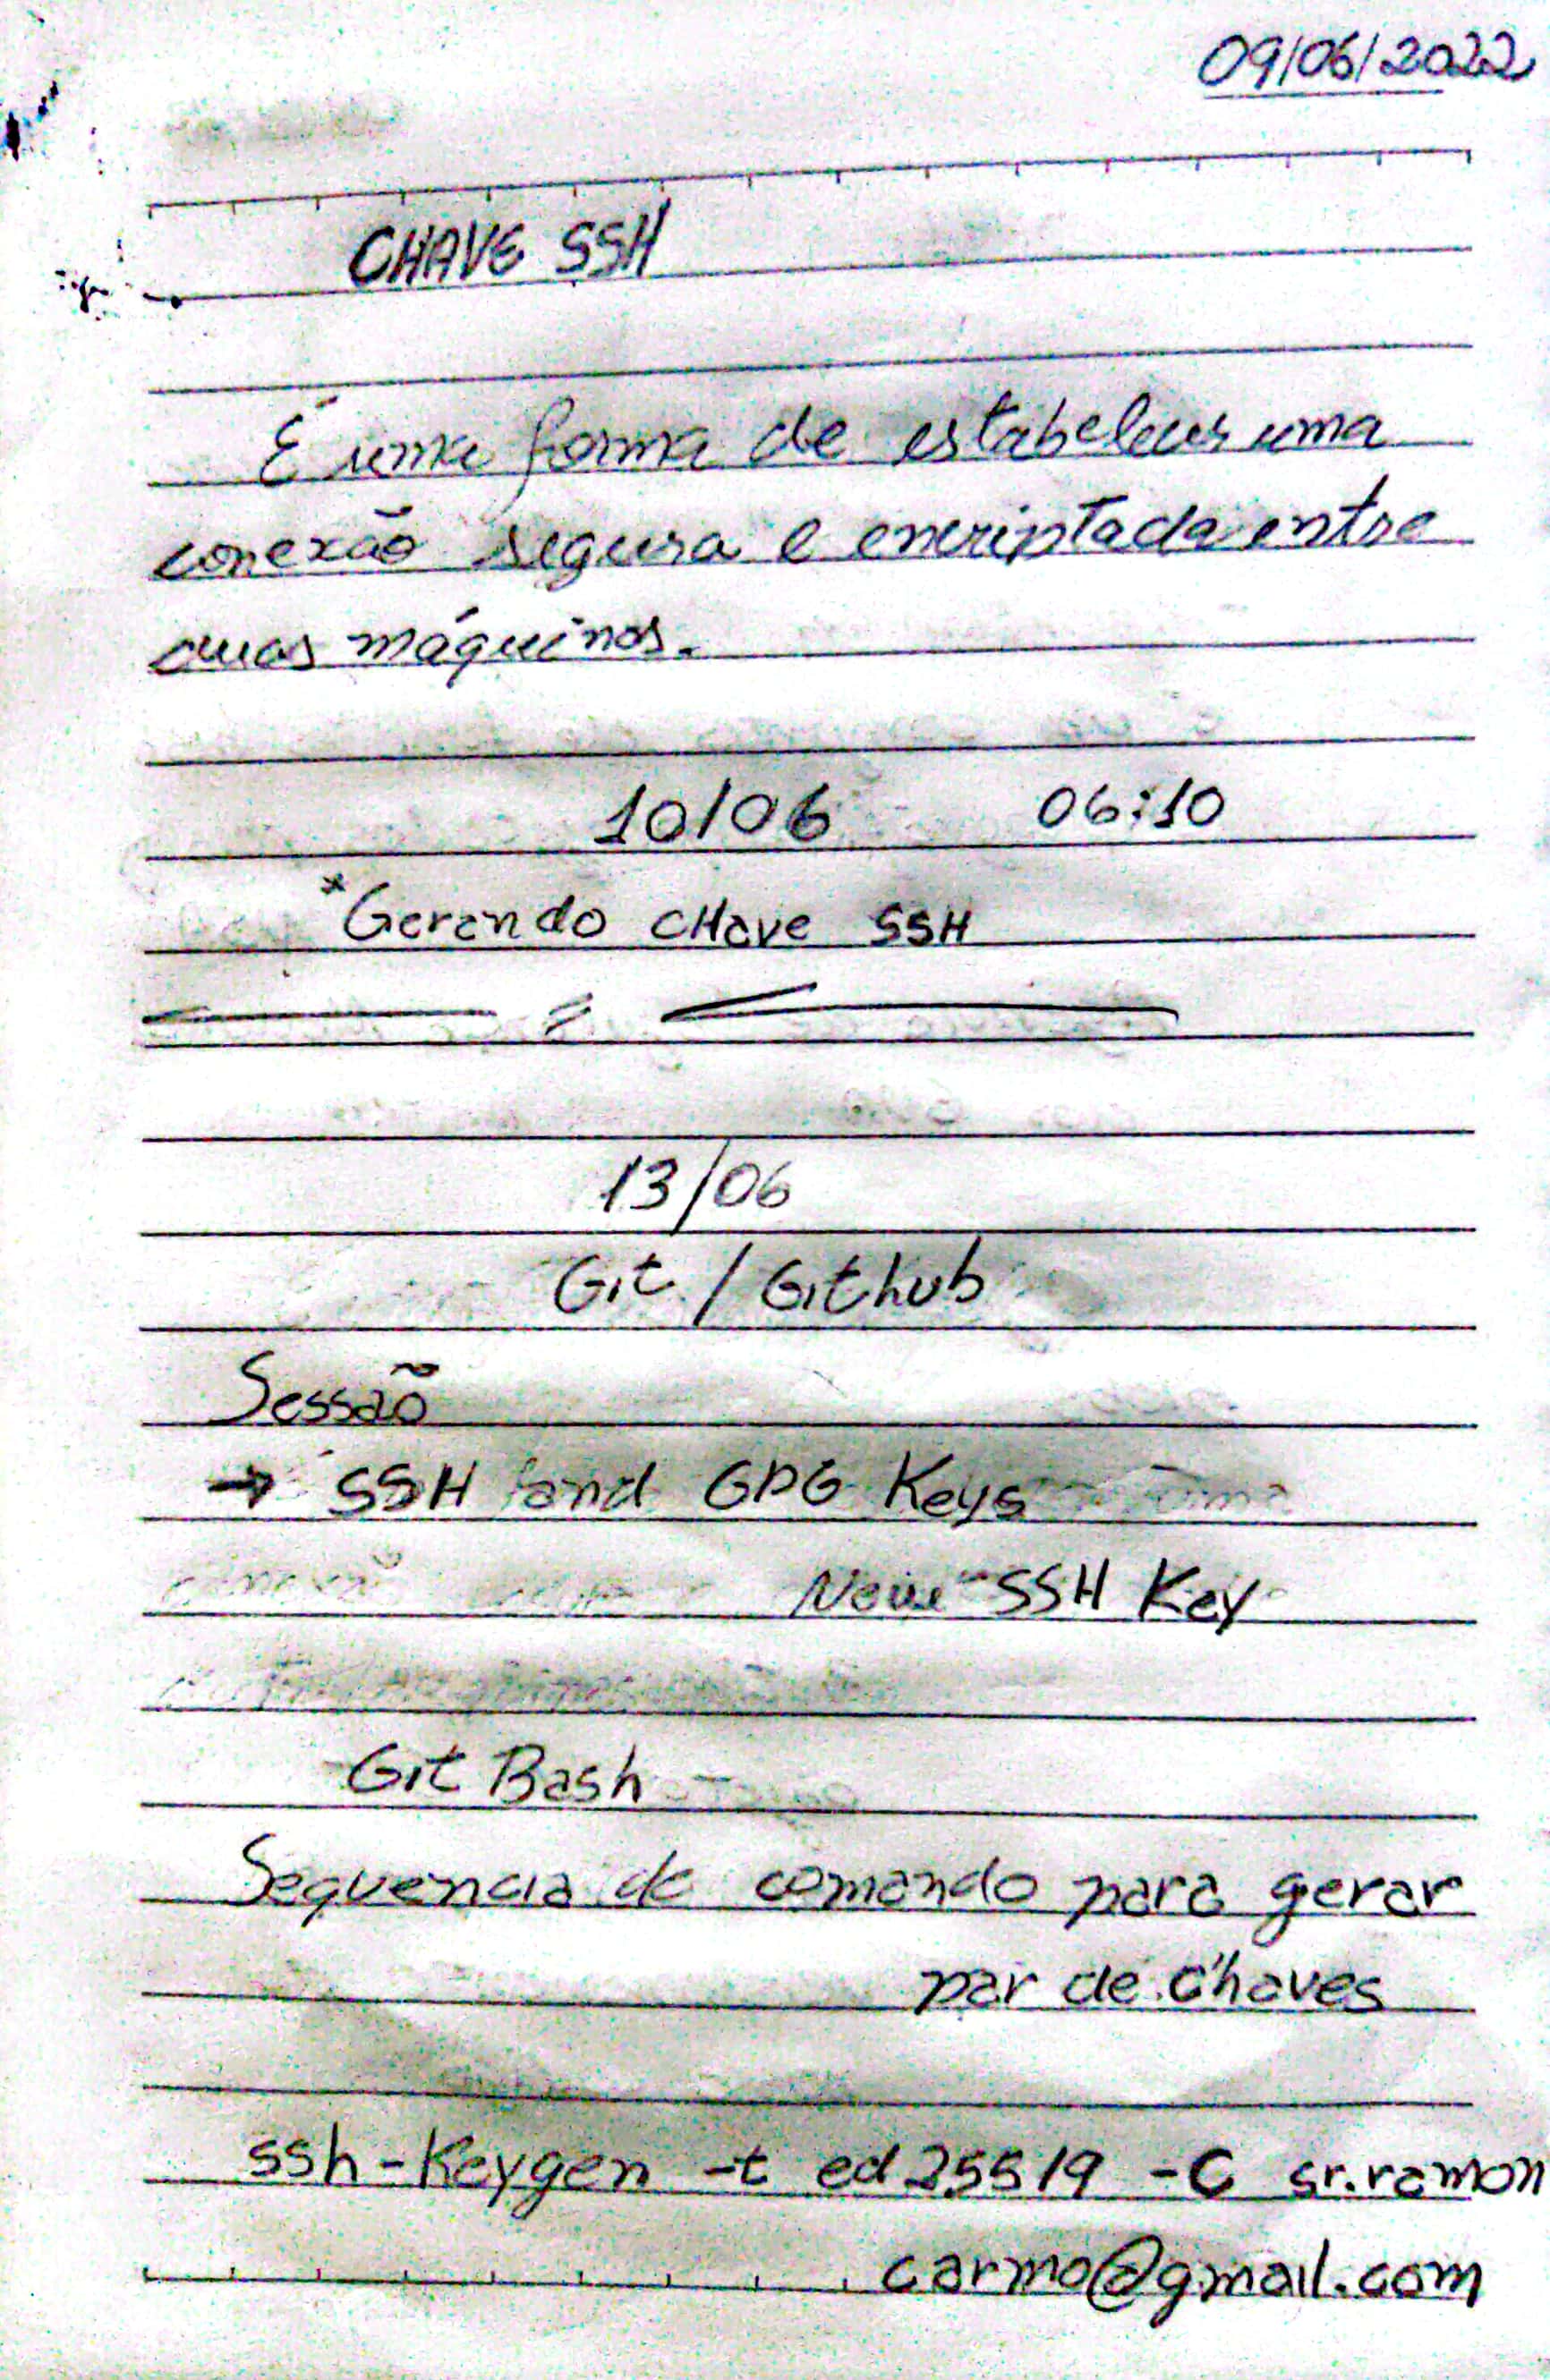 09/06/2022
CHAVE SSH
É uma forma de estabelecer uma
conexão segura e encriptada entre
duas máquinas.
10/06 06:10
*Gerando CHave SSH
13/06
Git / Github
Sessão
→ SSH and GPG Keys
New SSH Key
Git Bash
Sequencia de comando para gerar
par de chaves
ssh-Keygen -t ed25519 -C sr.ramon
carmo@gmail.com